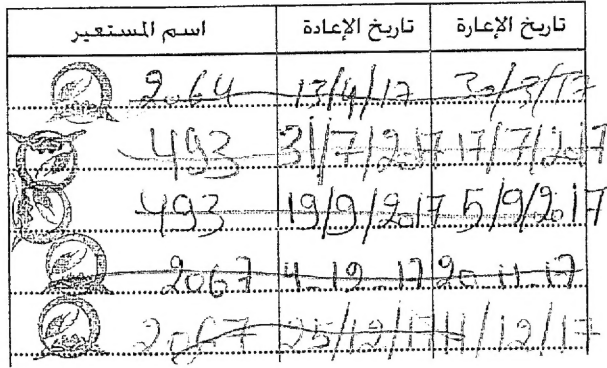 تاريخ الإعارة تاريخ الإعادة اسم المستعير
30/3/17 13/4/17 2064
17/7/2017 31/7/2017 493
5/9/2017 19/9/2017 493
20-11-17 4-12-17 2067
11/12/17 25/12/17 2067